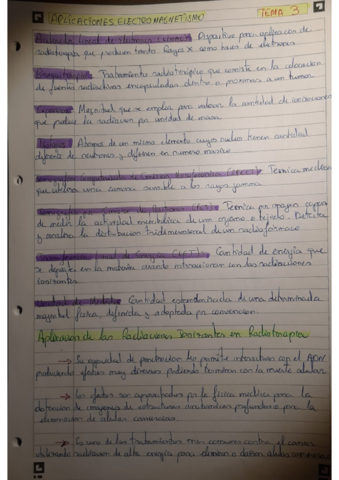 APLICACIONES ELECTROMAGNETISMO TEMA 3
Acelerador Lineal de Electrones Dispositivo para aplicación de
radioterapia que producen tanto Rayos X como haces de electrones
Tratamiento radioterápico que consiste en la colocación
de fuentes radioactivas encapsuladas dentro o próximas a un tumor
Magnitud que se emplea para valorar la cantidad de ionización
que produce la radiación por unidad de masa
Átomos de un mismo elemento cuyos núcleos tienen cantidad
diferente de neutrones y difieren en número másico
Técnica médica
que utiliza una cámara sensible a los rayos gamma
Técnica por imagen capaz
de medir la actividad metabólica de un órgano o tejido. Detecta
y analiza la distribución tridimensional de un radiofármaco
Cantidad de energía que
se deposita en la materia cuando interaccionan con las radiaciones
ionizantes.
Unidad de Medida Cantidad estandarizada de una determinada
magnitud física, definida y adoptada por convención.
Aplicación de las Radiaciones Ionizantes en Radioterapia
→ Su capacidad de penetración les permite interactuar con el ADN
produciendo efectos muy diversos pudiendo terminar con la muerte celular.
→ Los efectos son aprovechados por la física médica para la
obtención de imágenes de estructuras profundas o para la
eliminación de células cancerosas
→ Es uno de los tratamientos más comunes contra el cáncer
utilizando radiación de alta energía para eliminar o dañar células cancerosas